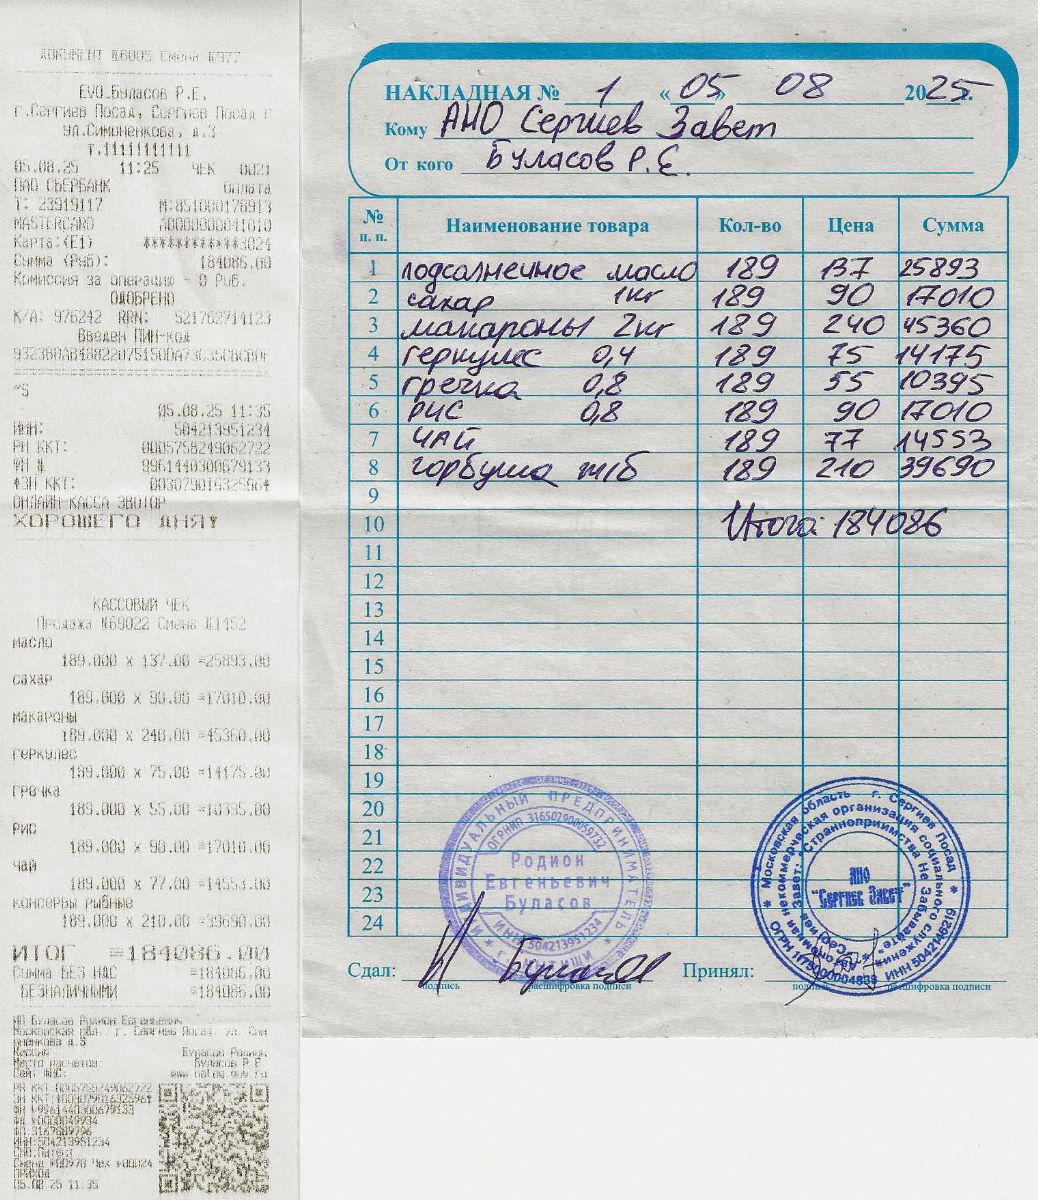 ДОКУМЕНТ №6005 Смена №977
EVO.Буласов Р.Е.
г.Сергиев Посад, Сергиев Посад г
ул.Симоненкова, д.3
т.11111111111
05.08.25 11:25 ЧЕК 0021
ПАО СБЕРБАНК Оплата
Т: 23919117 М:851000176913
MASTERCARD A0000000041010
Карта:(E1) ************3024
Сумма (Руб): 184086.00
Комиссия за операцию - 0 Руб.
ОДОБРЕНО
К/А: 976242 RRN: 521762714123
Введен ПИН-код
~S
05.08.25 11:35
ИНН: 504213951234
РН ККТ: 0005758249062722
ФН № 9961440300679133
ОНЛАЙН-КАССА ЭВОТОР
ХОРОШЕГО ДНЯ!
КАССОВЫЙ ЧЕК
Продажа №69022 Смена №1152
масло
189.000 x 137.00 =25893.00
сахар
189.000 x 90.00 =17010.00
макароны
189.000 x 240.00 =45360.00
геркулес
189.000 x 75.00 =14175.00
гречка
189.000 x 55.00 =10395.00
рис
189.000 x 90.00 =17010.00
чай
189.000 x 77.00 =14553.00
консервы рыбные
189.000 x 210.00 =39690.00
ИТОГ =184086.00
Сумма БЕЗ НДС =184086.00
БЕЗНАЛИЧНЫМИ =184086.00
ИП Буласов Родион Евгеньевич
Московская обл., г. Сергиев Посад, ул. Сим
оненкова д.3
Кассир Буласов Родион.
Место расчетов Буласов Р Е
Сайт ФНС: www.nalog.gov.ru
РН ККТ:0005758249062722
ФН №9961440300679133
ФД №0000049934
ФП:3167889796
ИНН:504213951234
СНО:Патент
Смена №00978 Чек №00024
ПРИХОД
05.08.25 11:35
НАКЛАДНАЯ № 1 «05» 08 2025.
Кому АНО Сергиев Завет
От кого Буласов Р.Е.
№ п. п. Наименование товара Кол-во Цена Сумма
1 подсолнечное масло 189 137 25893
2 сахар 1кг 189 90 17010
3 макароны 2кг 189 240 45360
4 геркулес 0,4 189 75 14175
5 гречка 0,8 189 55 10395
6 рис 0,8 189 90 17010
7 ЧАЙ 189 77 14553
8 горбуша ж/б 189 210 39690
9
10 Итого: 184086
11
12
13
14
15
16
17
18
19
20
21
22
23
24
ИНДИВИДУАЛЬНЫЙ ПРЕДПРИНИМАТЕЛЬ
ОГРНИП 316502900059732
Родион
Евгеньевич
Буласов
ИНН 504213951234
г. МЫТИЩИ
Московская область г. Сергиев Посад
Автономная некоммерческая организация социального служения
Странноприимства Не Забывайте
АНО
"Сергиев Завет"
ОГРН 1175000004838 ИНН 5042146219
Сдал: Буласов Принял:
подпись расшифровка подписи подпись расшифровка подписи